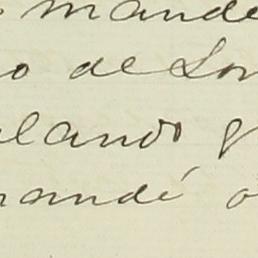 mande
o de Lon
lando, q
mandé o